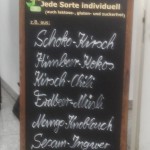 Jede Sorte individuell
auch laktose-, gluten- und zuckerfrei
z.B. wie:
Schoko-Kirsch
Himbeer-Kokos
Kirsch-Chili
Erdbeer-Minze
Mango-Knoblauch
Sesam-Ingwer